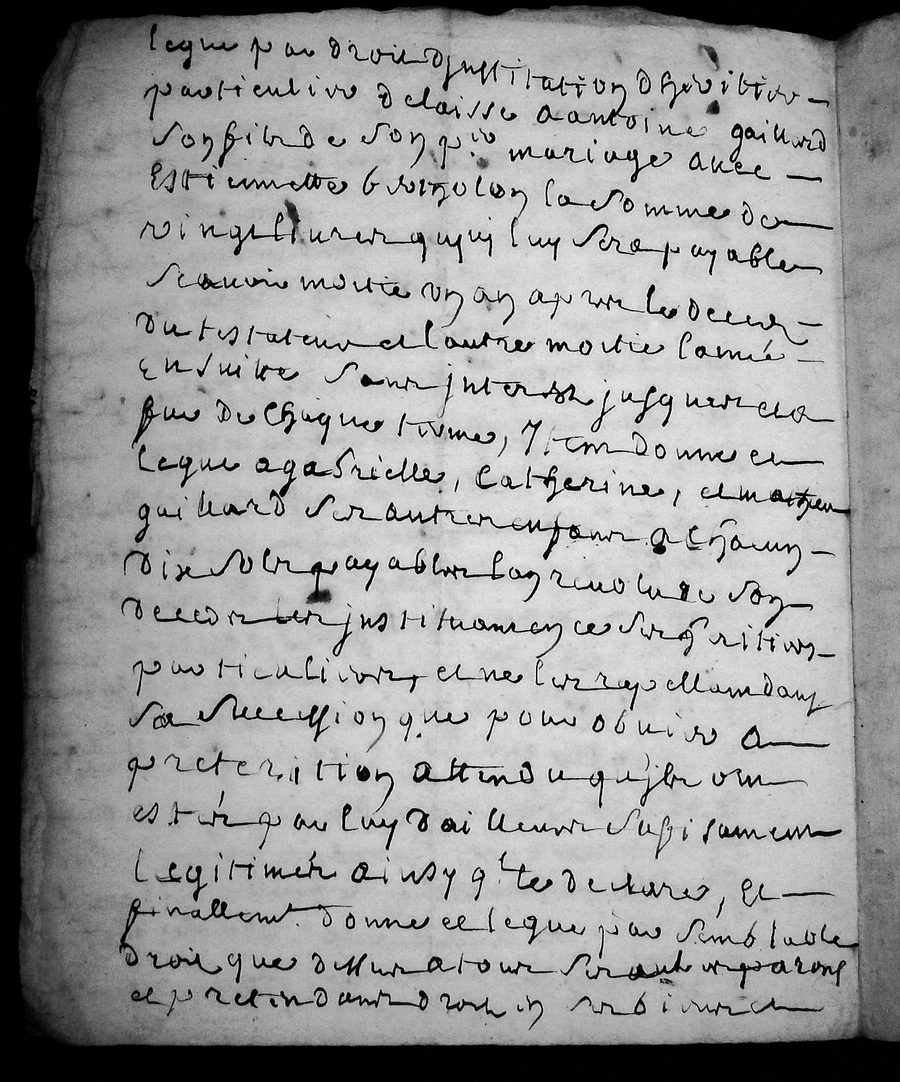 legue par droit djnstitution dheritier
particulier delaisse a antoine gaillard
son fils de son p.er mariage avec
Estiennette bertholon la somme de
vingt livres quy luy sera payable
scavoir moitie un an apres le deces
du testateur et lautre moitie lannée
ensuitte sans jnterest jusques a la
fin de chaque terme, Jtem donne et
legue a gabrielle, Catherine, et mathieu
gaillard ses autres enfans a chacun
dix sols payables lan revolu de son
deces les jnstituant en ce ses heritiers
particuliers, et ne les rapellant dans
sa succession que pour obvier a
preterition attendu qu'jls ont
estés par luy dailleurs sufisament
legitimés ainsy q.l le declare, Et
finallemt. donne et legue par semblable
droit que dessus a tous ses autres parens
et pretendants droit en ses biens et